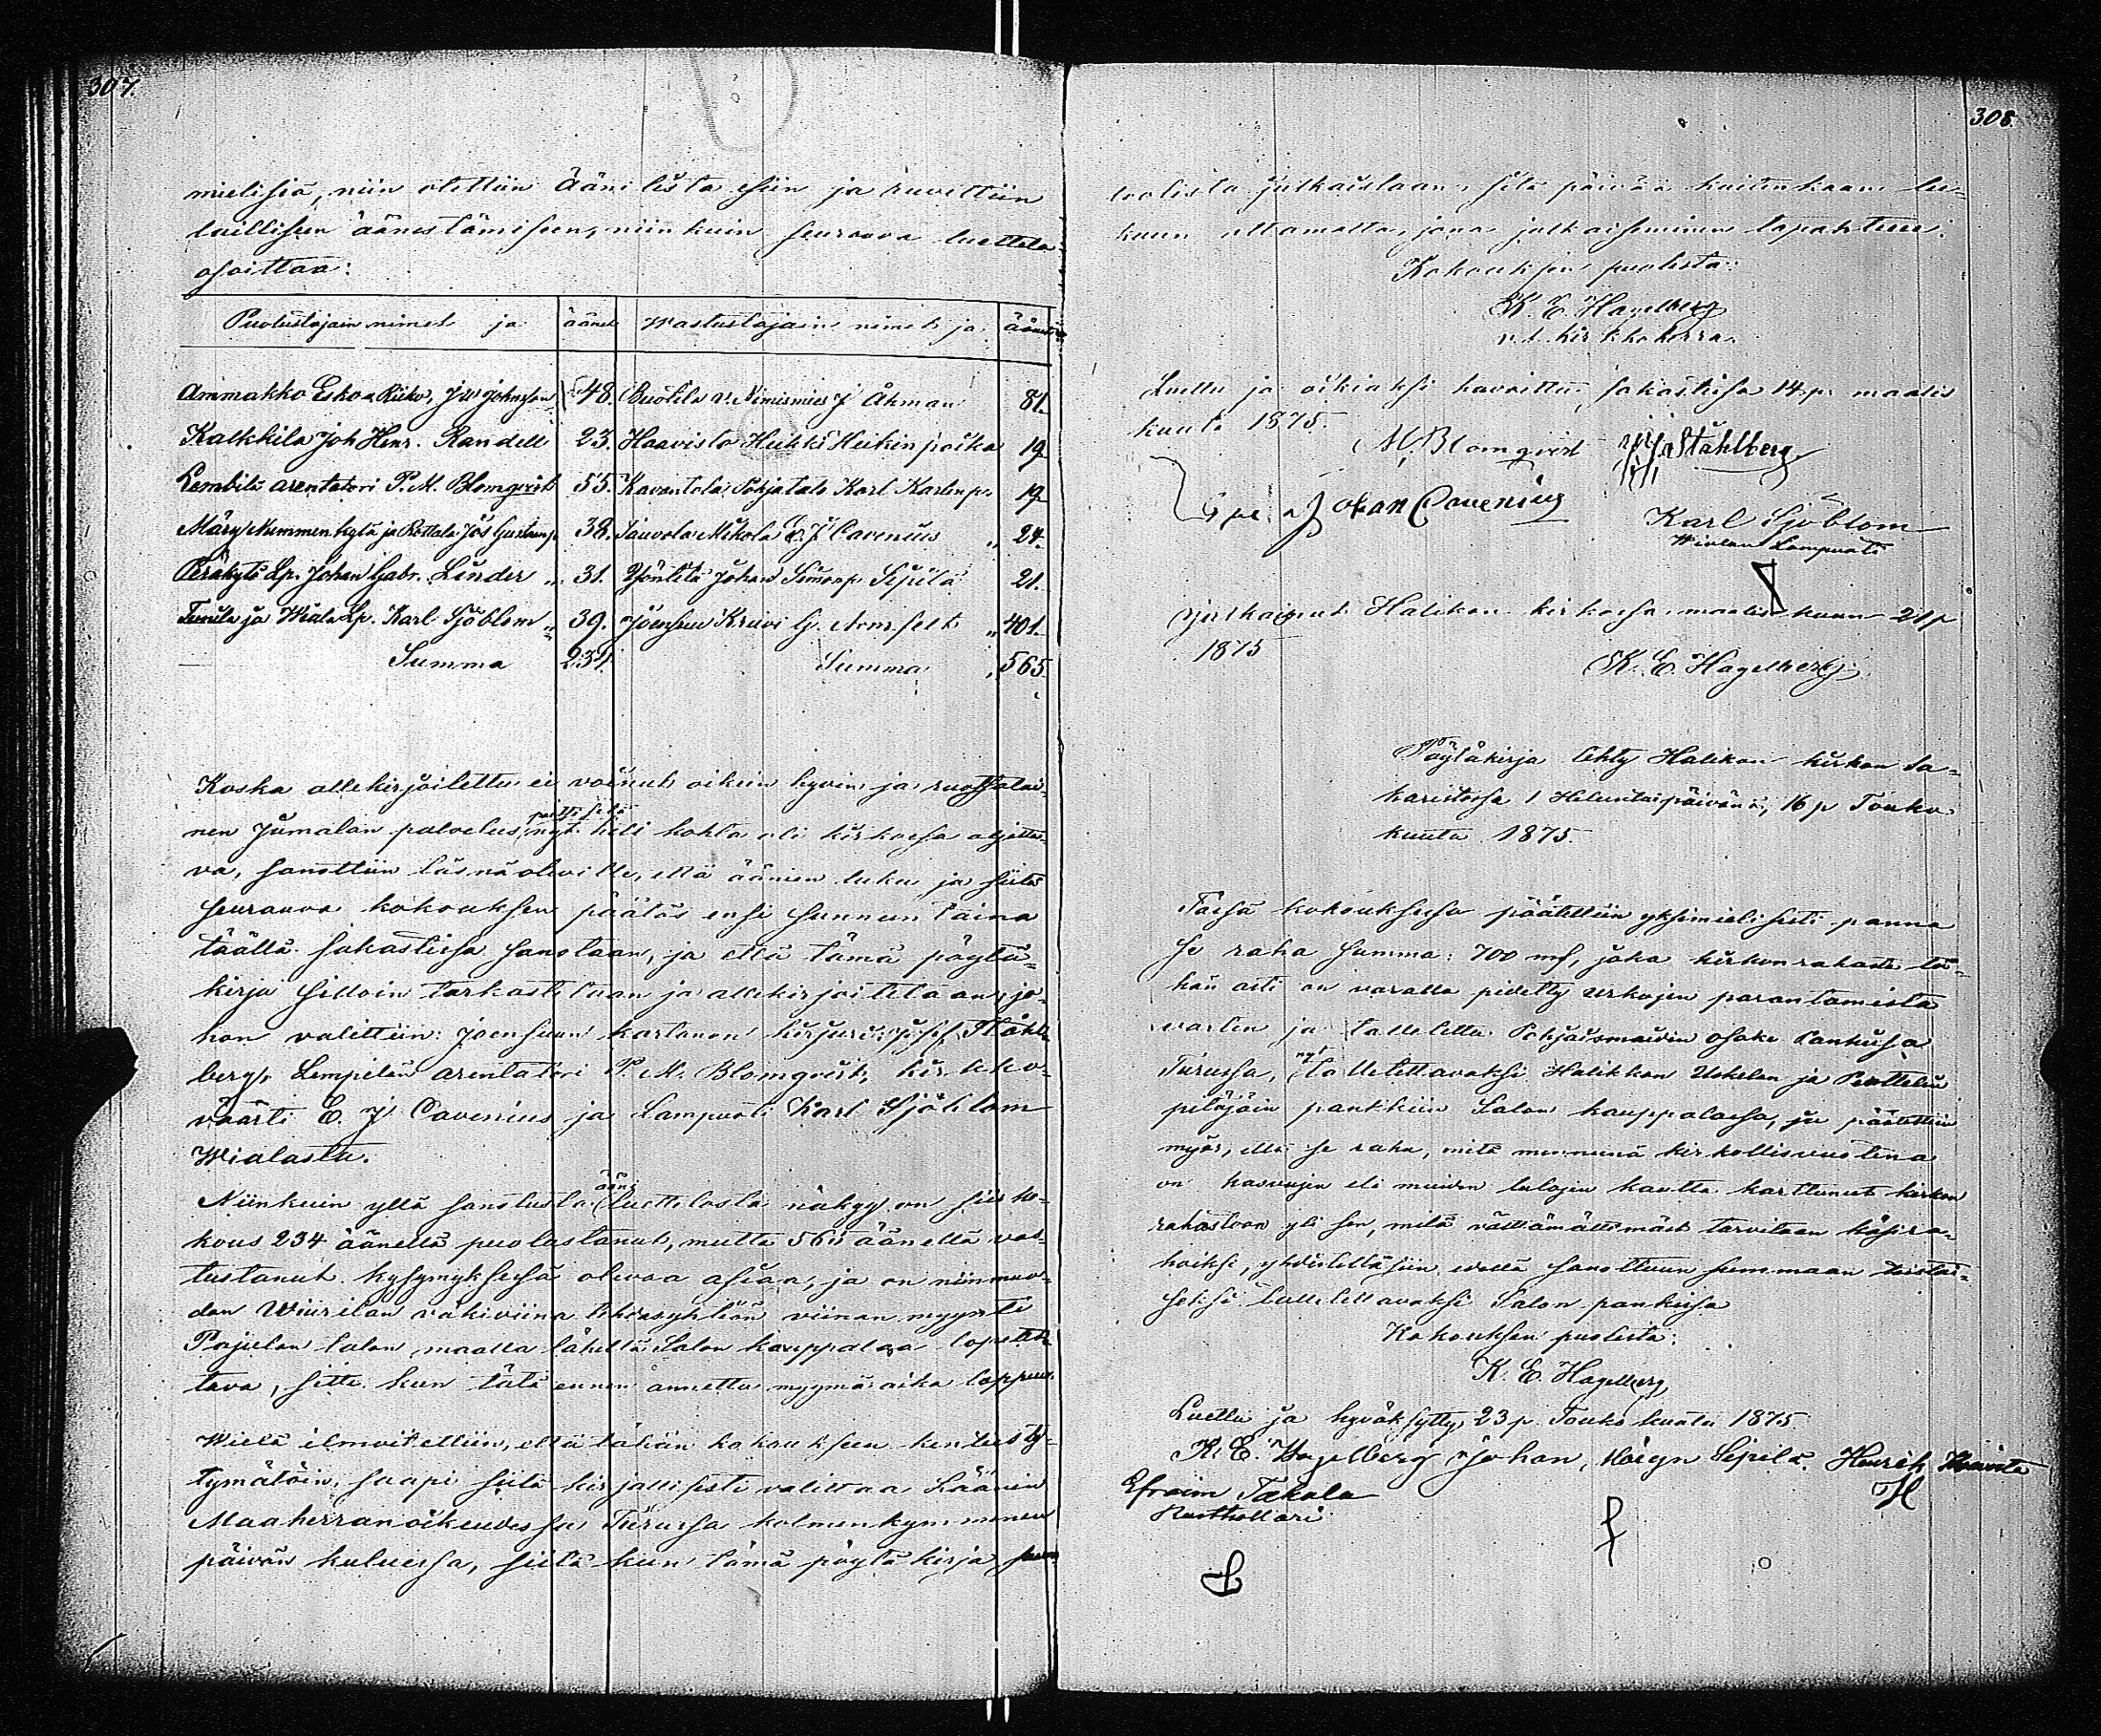 307.
mielisiä, niin otettiin ääni lista esiin ja ruvettiin
lailliseen äänestämiseen, niin kuin seuraava luettelo
osoittaa:
Puolustajain nimet ja äänet Wastustajain nimet ja äänet
Ammakko Esko a Riiko, J W Johnsson 48. Puotila v. Nimismies J Åkman 81.
Kalkkila Joh Henr. Randell 23. Haavisto Heikki Heikinpoika 19
Lembilä arentatori P. M. Blomqvist 55. Kavantola Pohjatalo Karl Karlinp. 19
Märy Nummenkylä ja Rottala Jos Gustavsp. 38. Sauvola Mikola E. J Cavenius „ 24.
Peräkylä Lp. Johan Gabr. Linder „ 31. Yönlilä Johan Simonp. Sipilä 21.
Tunila ja Wiala Lp. Karl Sjöblom „ 39. Joensuu Kreivi G. Armfelt „ 401.
Summa 234. Summa „ 565.
Koska allekirjoitettu ei voinut oikein hyvin ja ruotsalai-
nen Jumalan palvelus paitsi sitä nyt heti kohta oli kirkossa aljetta-
va, sanottiin läsnä oleville, että äänien luku ja siitä
seuraava kokouksen päätös ensi sunnuntaina
täällä sakastissa sanotaan, ja että tämä pöytä-
kirja silloin tarkastetaan ja allekirjoitetaan, jo-
hon valittiin: Joensuun kartanon kirjuri Josef Ståhl-
berg, Lempilän arentatori P. M. Blomqvist, kirkko-
väärti E. J Cavenius ja Lampuoti Karl Sjöblom
Wialasta.
Niinkuin yllä sanotusta ääni luettelosta näkyy on siis ko-
kous 234 äänellä puolustanut, mutta 565 äänellä vas-
tustanut kysymyksessä olevaa asiaa, ja on niin muo-
don Wiurilan väkiviina tehdasyhtiön viinan myynti
Pajulan talon maalla lähellä Salon kauppalaa lopetet-
tava, sitte kun tätä ennen annettu myymä aika loppuu.
Wielä ilmoitettiin, että tähän kokoukseen ken tyyty-
tymätöin, saapi siitä kirjallisesti valittaa Läänin
Maaherran oikeudessa Turussa kolmenkymmenen
päivän kuluessa, siitä kuin tämä pöytäkirja saar-
308.
tuolista julkaistaan, sitä päivää kuitenkaan lu-
kuun ottamatta, jona julkaiseminen tapahtuu.
Kokouksen puolesta:
K. E. Hagelberg
v. t. kirkkoherra.
Luettu ja oikiaksi havaittu, sakastissa 14 p. maalis
kuuta 1875.
M. Blomqvist J. J. Ståhlberg
Johan Cavenius
Karl Sjöblom
Wialan Lampuoti
Julkaissut Halikon kirkossa maaliskuun 21 p
1875
K. E. Hagelberg
Pöytäkirja tehty Halikon kirkon sa-
karistossa 1 Heluntaipäivänä, 16 p Touko
kuuta 1875.
Tässä kokouksessa päätettiin yksimielisesti panna
se raha summa: 700 mk, joka kirkonrahasta tä-
hän asti on varalla pidetty urkujen parantamista
varten ja talletettu Pohjaismaiden osake Pankissa
Turussa, nyt talletettavaksi Halikkon Uskelan ja Perttelin
pitäjäin pankkiin Salon kauppalassa, ja päätettiin
myös, että se raha, mitä mennenä kirkollisvuotena
on kasvujen eli muiden tulojen kautta karttunut kirkon
rahastoon yli sen, mitä välttämättömästi tarvitaan käsira-
hoiksi, yhdistettäisiin edellä sanottuun summaan toistai-
seksi talletettavaksi Salon pankissa
Kokouksen puolesta:
K. E. Hagelberg
Luettu ja hyväksytty, 23 p. Touko kuuta 1875.
K. E. Hagelberg Johan, Sipilä. Henrik Haavisto
Efraim Takala H
Rusthollari